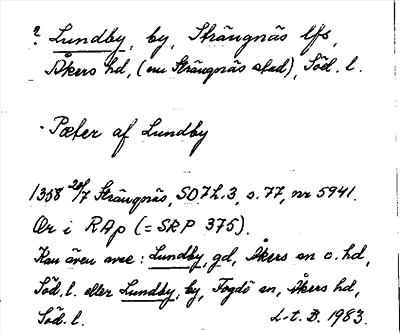 ? Lundby, by, Strängnäs lfs,
Åkers hd, (nu Strängnäs stad), Söd. l.
Pæter af Lundby
1358 20/7 Strängnäs, SD 7 h. 3, s. 77, nr 5941.
Or i RAp (= SRP 375).
Kan även avse: Lundby, gd, Åkers sn o. hd,
Söd. l. eller Lundby, by, Fogdö sn, Åkers hd,
Söd. l. L-t. B. 1983.